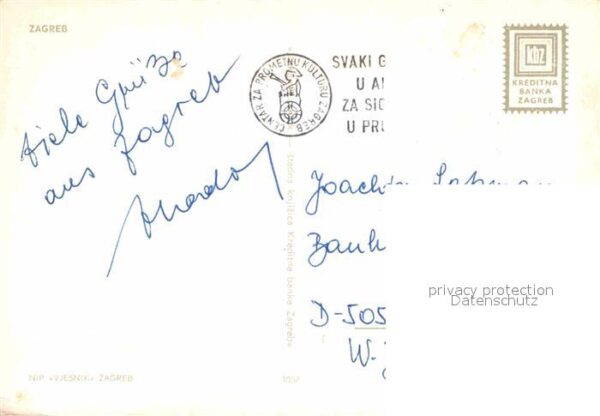 ZAGREB
Viele Grüße
aus Zagreb
CENTAR ZA PROMETNU KULTURU ZAGREB
SVAKI G
U A
ZA SI
U PR
KbZ
KREDITNA
BANKA
ZAGREB
štedna knjižica Kreditne banke Zagreb
Joachim
Bank
D-505
W.
privacy protection
Datenschutz
NIP «VJESNIK» ZAGREB